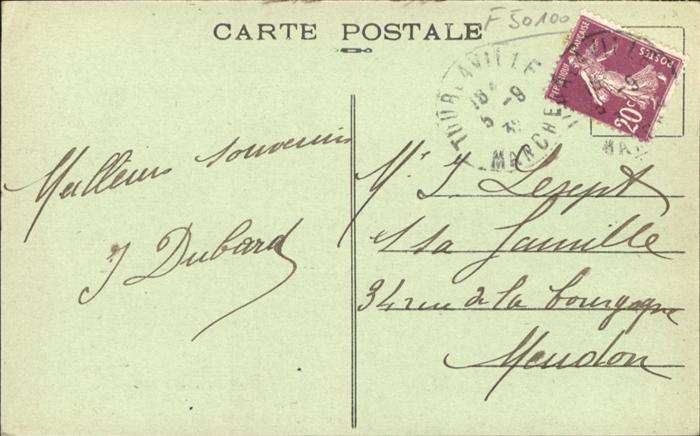 CARTE POSTALE
F 50100
TOURLAVILLE
MANCHE
18
5 -9
REPUBLIQUE FRANÇAISE
POSTES
20c
Meilleurs souvenirs
J Dubard
Mr J. Lesept
& sa famille
34 rue de la bourgogne
Meudon